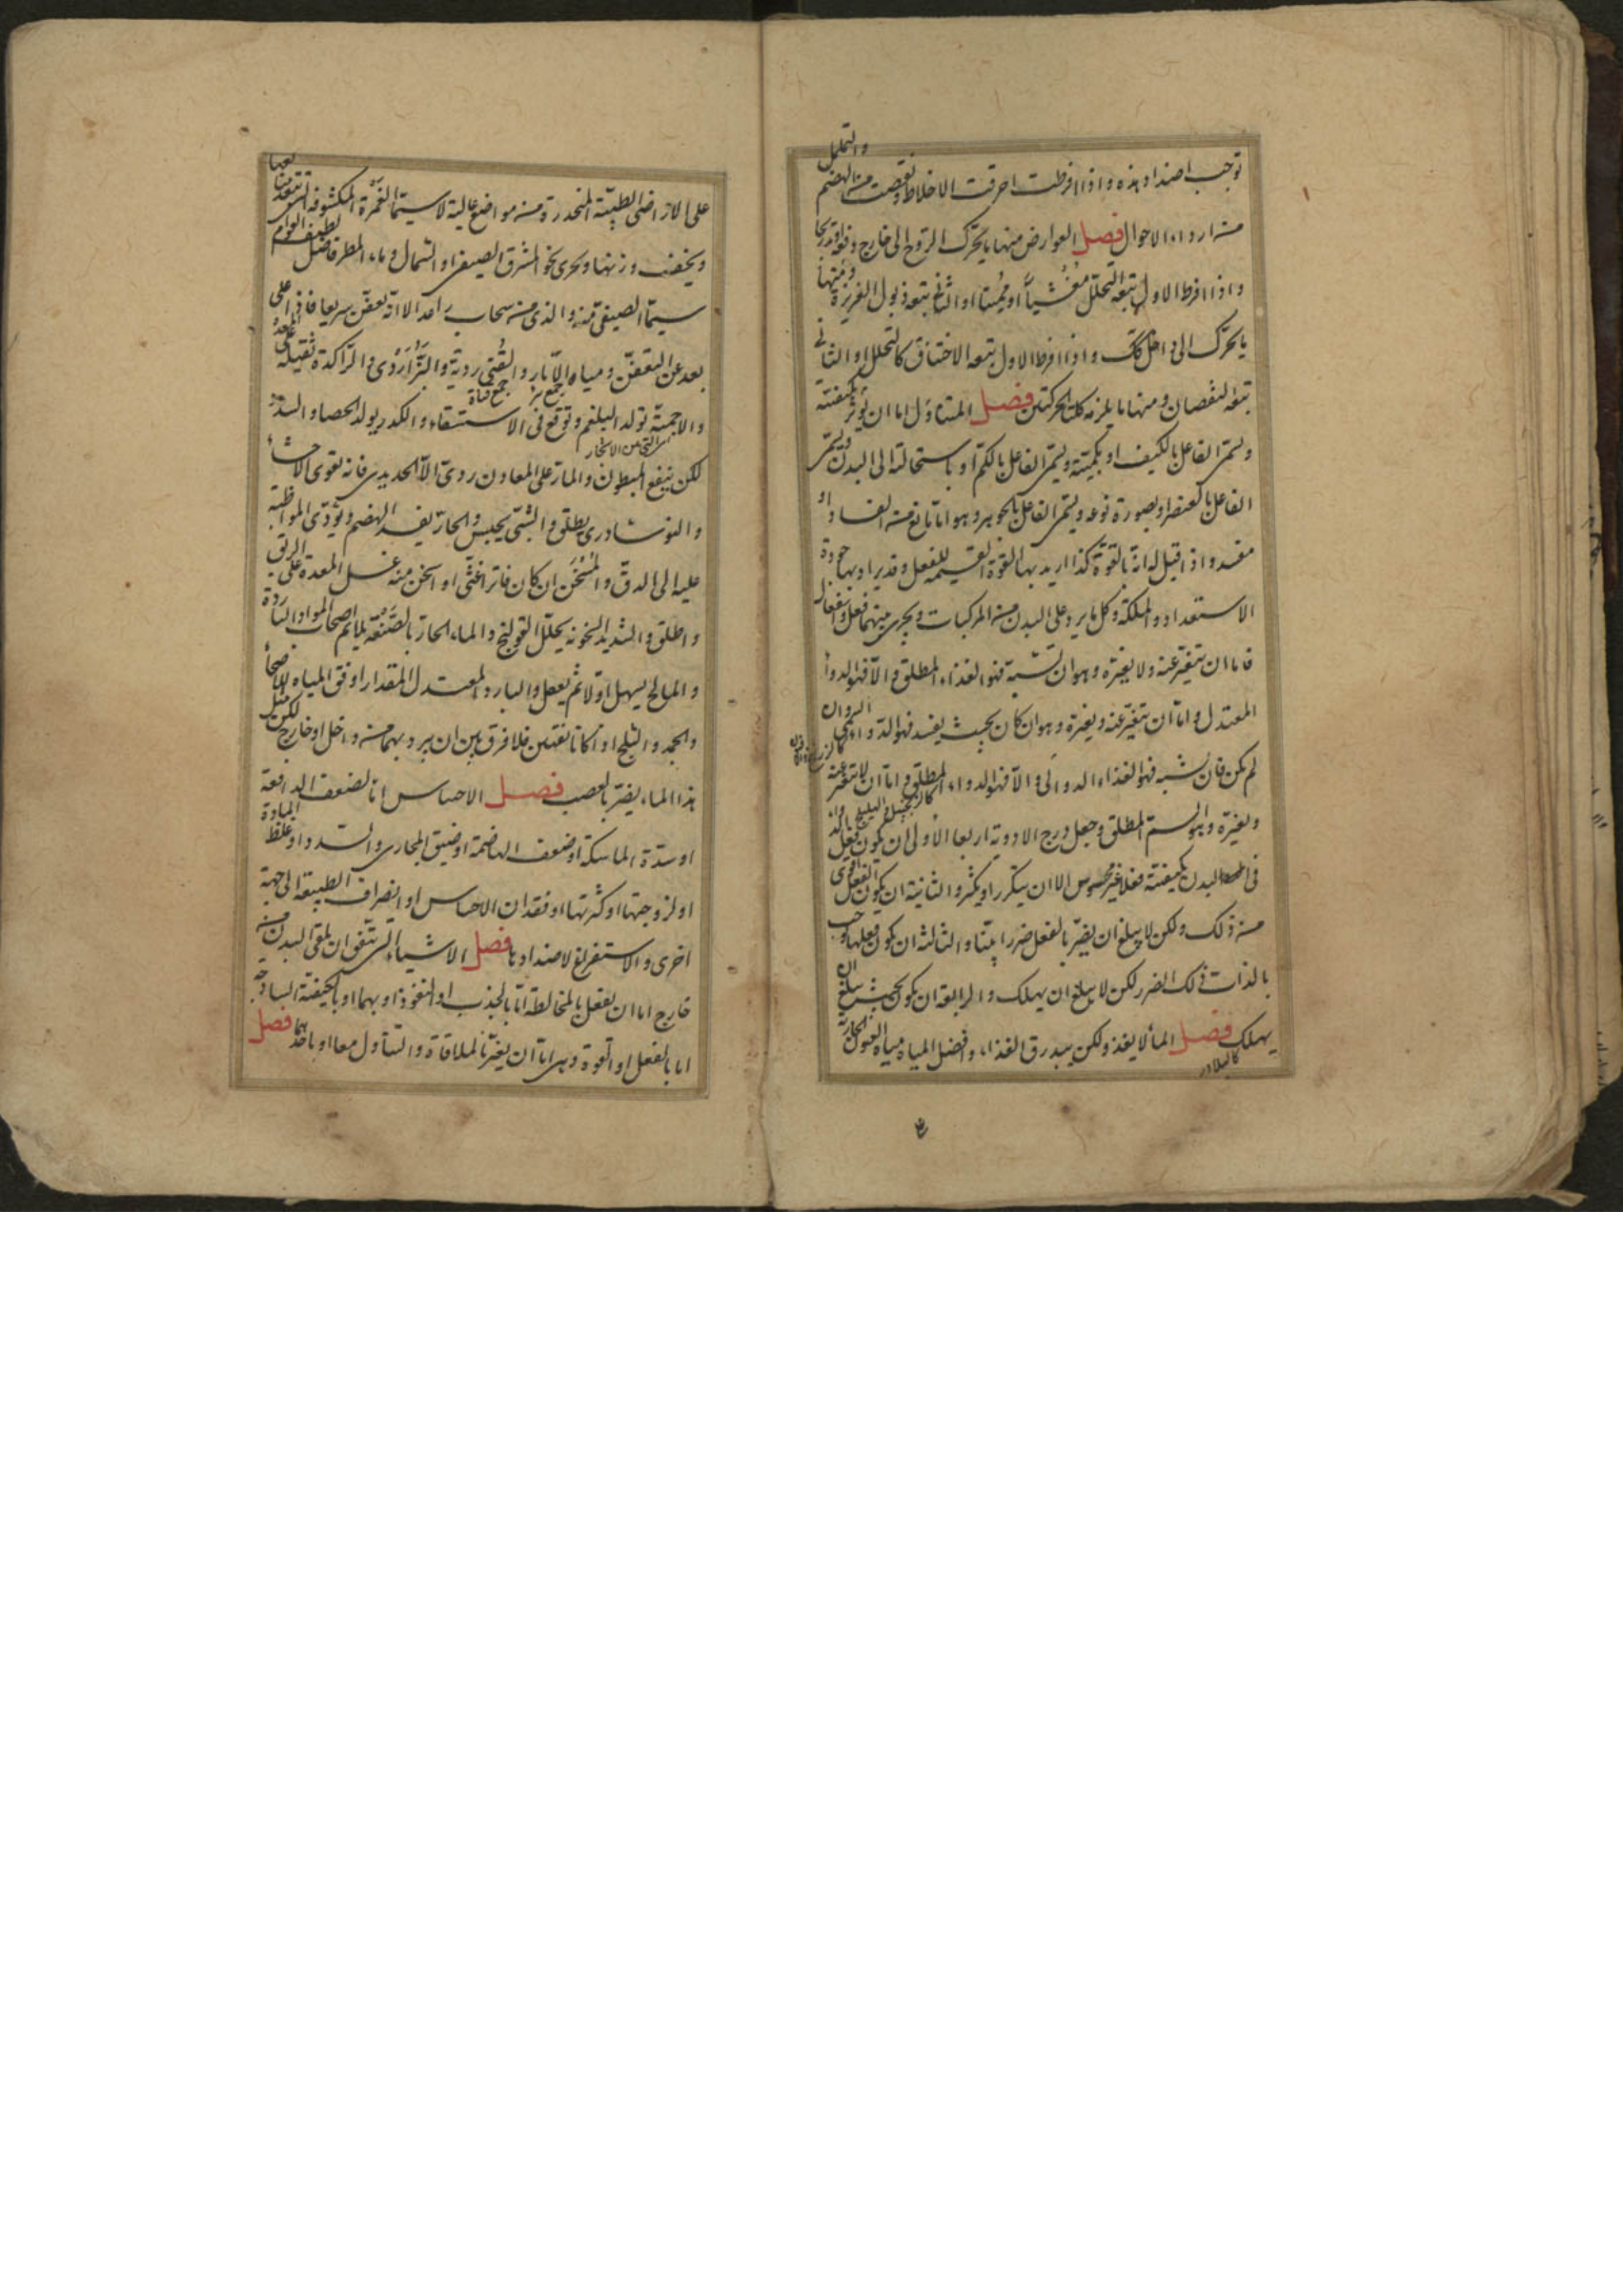 توجب اضداد هذه واذا افرطت احرقت الاخلاط ونقصت من الهضم والتحلل
من ارداء الاحوال فصل العوارض منها ما يحرك الروح الى خارج دفعة او تدريجا
واذا افرط الاول يتبعه التحلل مغشيا او مميتا او الثانى يتبعه ذبول الغريزة ومنها
ما يحرك الى داخل كك واذا افرط الاول يتبعه الاختناق كالتحلل او الثانى
يتبعه النقصان ومنها ما يلزمه كلتا الحركتين فصل المتناول اما ان يؤثر بكيفيته
ويسمى الفاعل بالكيف او بكميته ويسمى الفاعل بالكم او باستحالته الى البدن ويسمى
الفاعل بالعنصر او بصورة نوعه ويسمى الفاعل بالجوهر وهو اما نافع من الفساد او
مفسد واذا قيل له انه بالقوة كذا اريد بها القوة القسيمة للفعل وقد يراد بها جودة
الاستعداد والملكة وكل ما يرد على البدن من المركبات ويجرى بينهما فعل وانفعال
فاما ان يتغير عنه ولا يغيره وهو ان تشبه فهو الغذاء المطلق والا فهو الدواء
المعتدل واما ان يتغير عنه ويغيره وهو ان كان بحيث يفسد فهو الدواء السمى وان
لم يكن فان تشبه فهو الغذاء الدوائى والا فهو الدواء المطلق واما ان لا يتغير عنه
ويغيره وهو السم المطلق وجعل درج الادوية اربعا الاولى ان يكون فعل
فى البدن بكيفيته فعلا غير محسوس الا ان يتكرر او يكثر والثانية ان يكون الفعل اقوى
من ذلك ولكن لا يبلغ ان يضر بالفعل ضررا بينا والثالثة ان يكون فعلها يوجب
بالذات ذلك الضرر لكن لا يبلغ ان يهلك والرابعة ان يكون بحيث يبلغ ان
يهلك فصل الماء لا يغذو لكن يبدرق الغذاء وافضل المياه مياه العيون الجارية
كالبلادر
على الاراضى الطيبة المنحدرة من مواضع عالية لا سيما الغمرة المكشوفة التى تبعد منابعها
ويخف وزنها وتجرى نحو المشرق الصيفى او الشمال وماء المطر فاضل لطيف القوام
سيما الصيفى منه والذى من سحاب راعد الا انه يعفن سريعا فاذا اغلى
بعد عن التعفن ومياه الآبار والقنى ردية والنز اردى والراكدة ثقيلة على المعدة
جمع بئر جمع قناة
والاجمية تولد البلغم وتوقع فى الاستسقاء والكدر يولد الحصا والسدد
لكن ينفع المبطون والمار على المعادن ردى الا الحديدى فانه يقوى الاحشاء
والنوشادرى يطلق والشبى يحبس والحار يفسد الهضم ويؤدى المواظبة
عليه الى الدق والمسخن ان كان فاترا غثى او اسخن منه غسل المعدة على الريق
واطلق والشديد السخونة يحلل القولنج والماء الحار بالصنعة يلايم اصحاب المواد الباردة
والمالح يسهل اولا ثم يعقل والبارد المعتدل المقدار اوفق المياه للاصحاء
والجمد والثلج اذا كانا نقيين فلا فرق بين ان يبرد بهما من داخل او خارج لكن مثل
هذا الماء يضر بالعصب فصل الاحتباس اما لضعف الدافعة
او شدة الماسكة او ضعف الهاضمة او ضيق المجارى والسدد او غلظ المادة
او لزوجتها او كثرتها او فقدان الاحساس او انصراف الطبيعة الى جهة
اخرى والاستفراغ لاضدادها فصل الاشياء التى يتفق ان يلقى البدن من
خارج اما ان يفعل بالمخالطة اما بالجذب او النفوذ او بهما او بالكيفية الساذجة
اما بالفعل او القوة وهى اما ان يغير بالملاقاة والتناول معا او باحدهما فصل